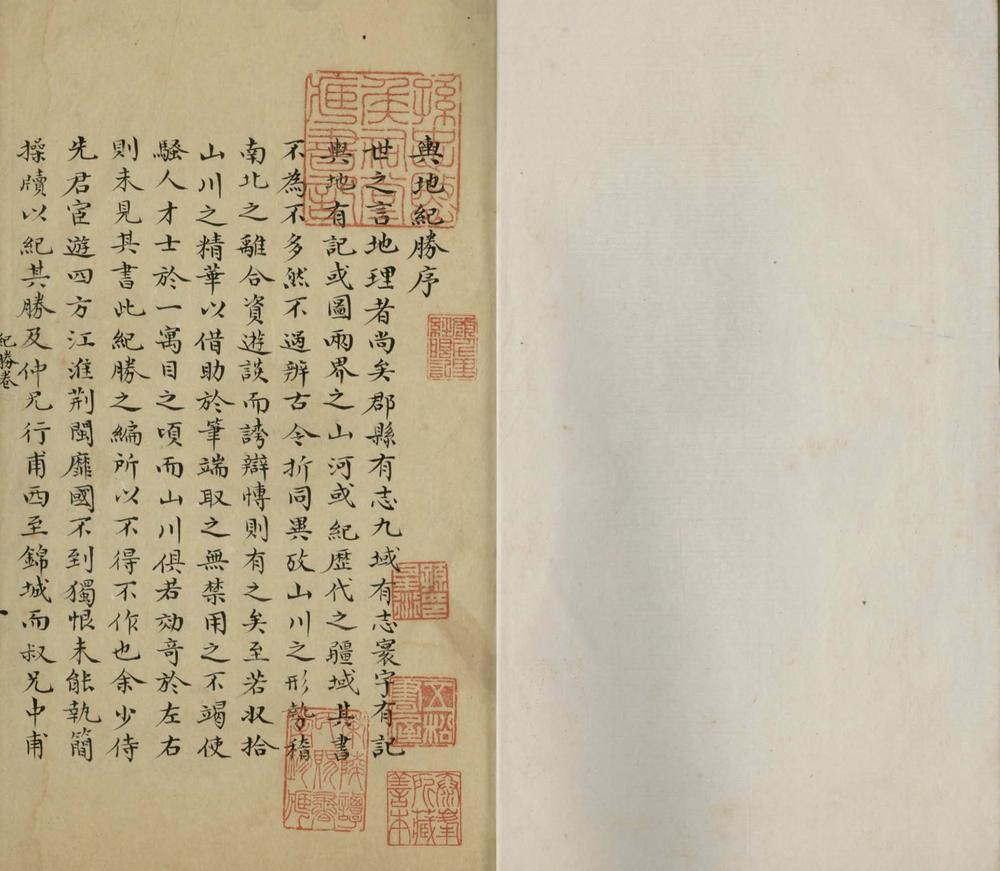 輿地紀勝序
世之言地理者尚矣郡縣有志九域有志寰宇有記
輿地有記或圖兩界之山河或紀歷代之疆域其書
不為不多然不過辨古今析同異攷山川之形勢稽
南北之離合資遊談而誇辯博則有之矣至若収拾
山川之精華以借助於筆端取之無禁用之不竭使
騷人才士於一寓目之頃而山川俱若効竒於左右
則未見其書此紀勝之編所以不得不作也余少侍
先君宦遊四方江淮荆閩靡國不到獨恨未能執簡
操牘以紀其勝及仲兄行甫西至錦城而叔兄中甫
紀勝卷
五松書屋
泰峯所藏善本